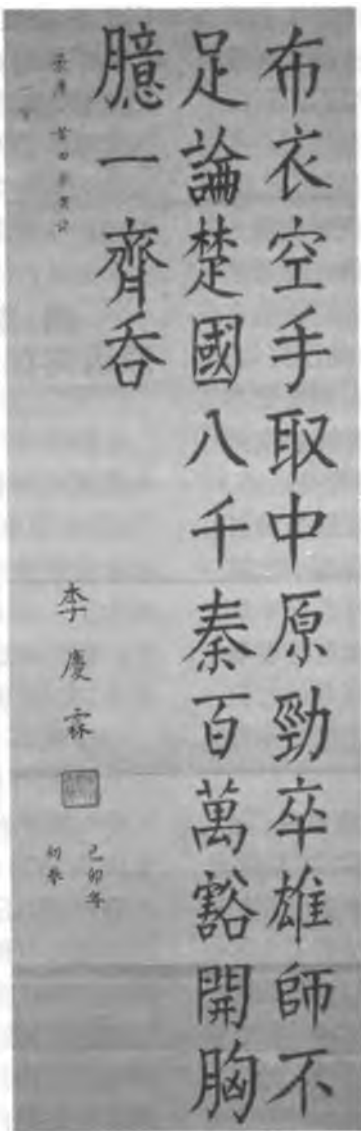 布衣空手取中原勁卒雄師不
足論楚國八千秦百萬豁開胸
臆一齊吞
李慶霖
己卯年
初春